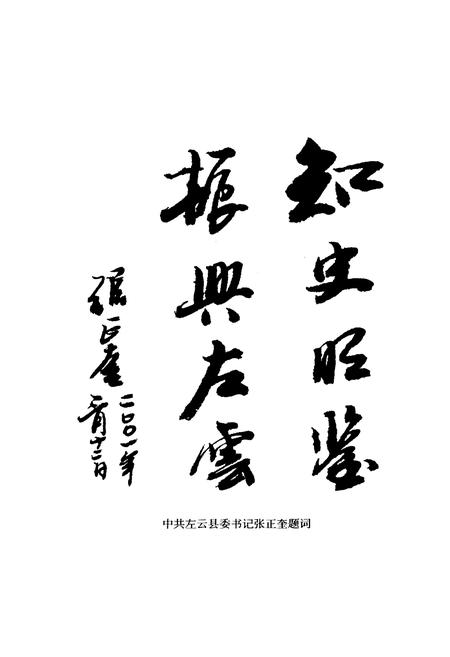 知史明鉴
振興左雲
张正奎
二〇〇一年
二月十二日
中共左云县委书记张正奎题词